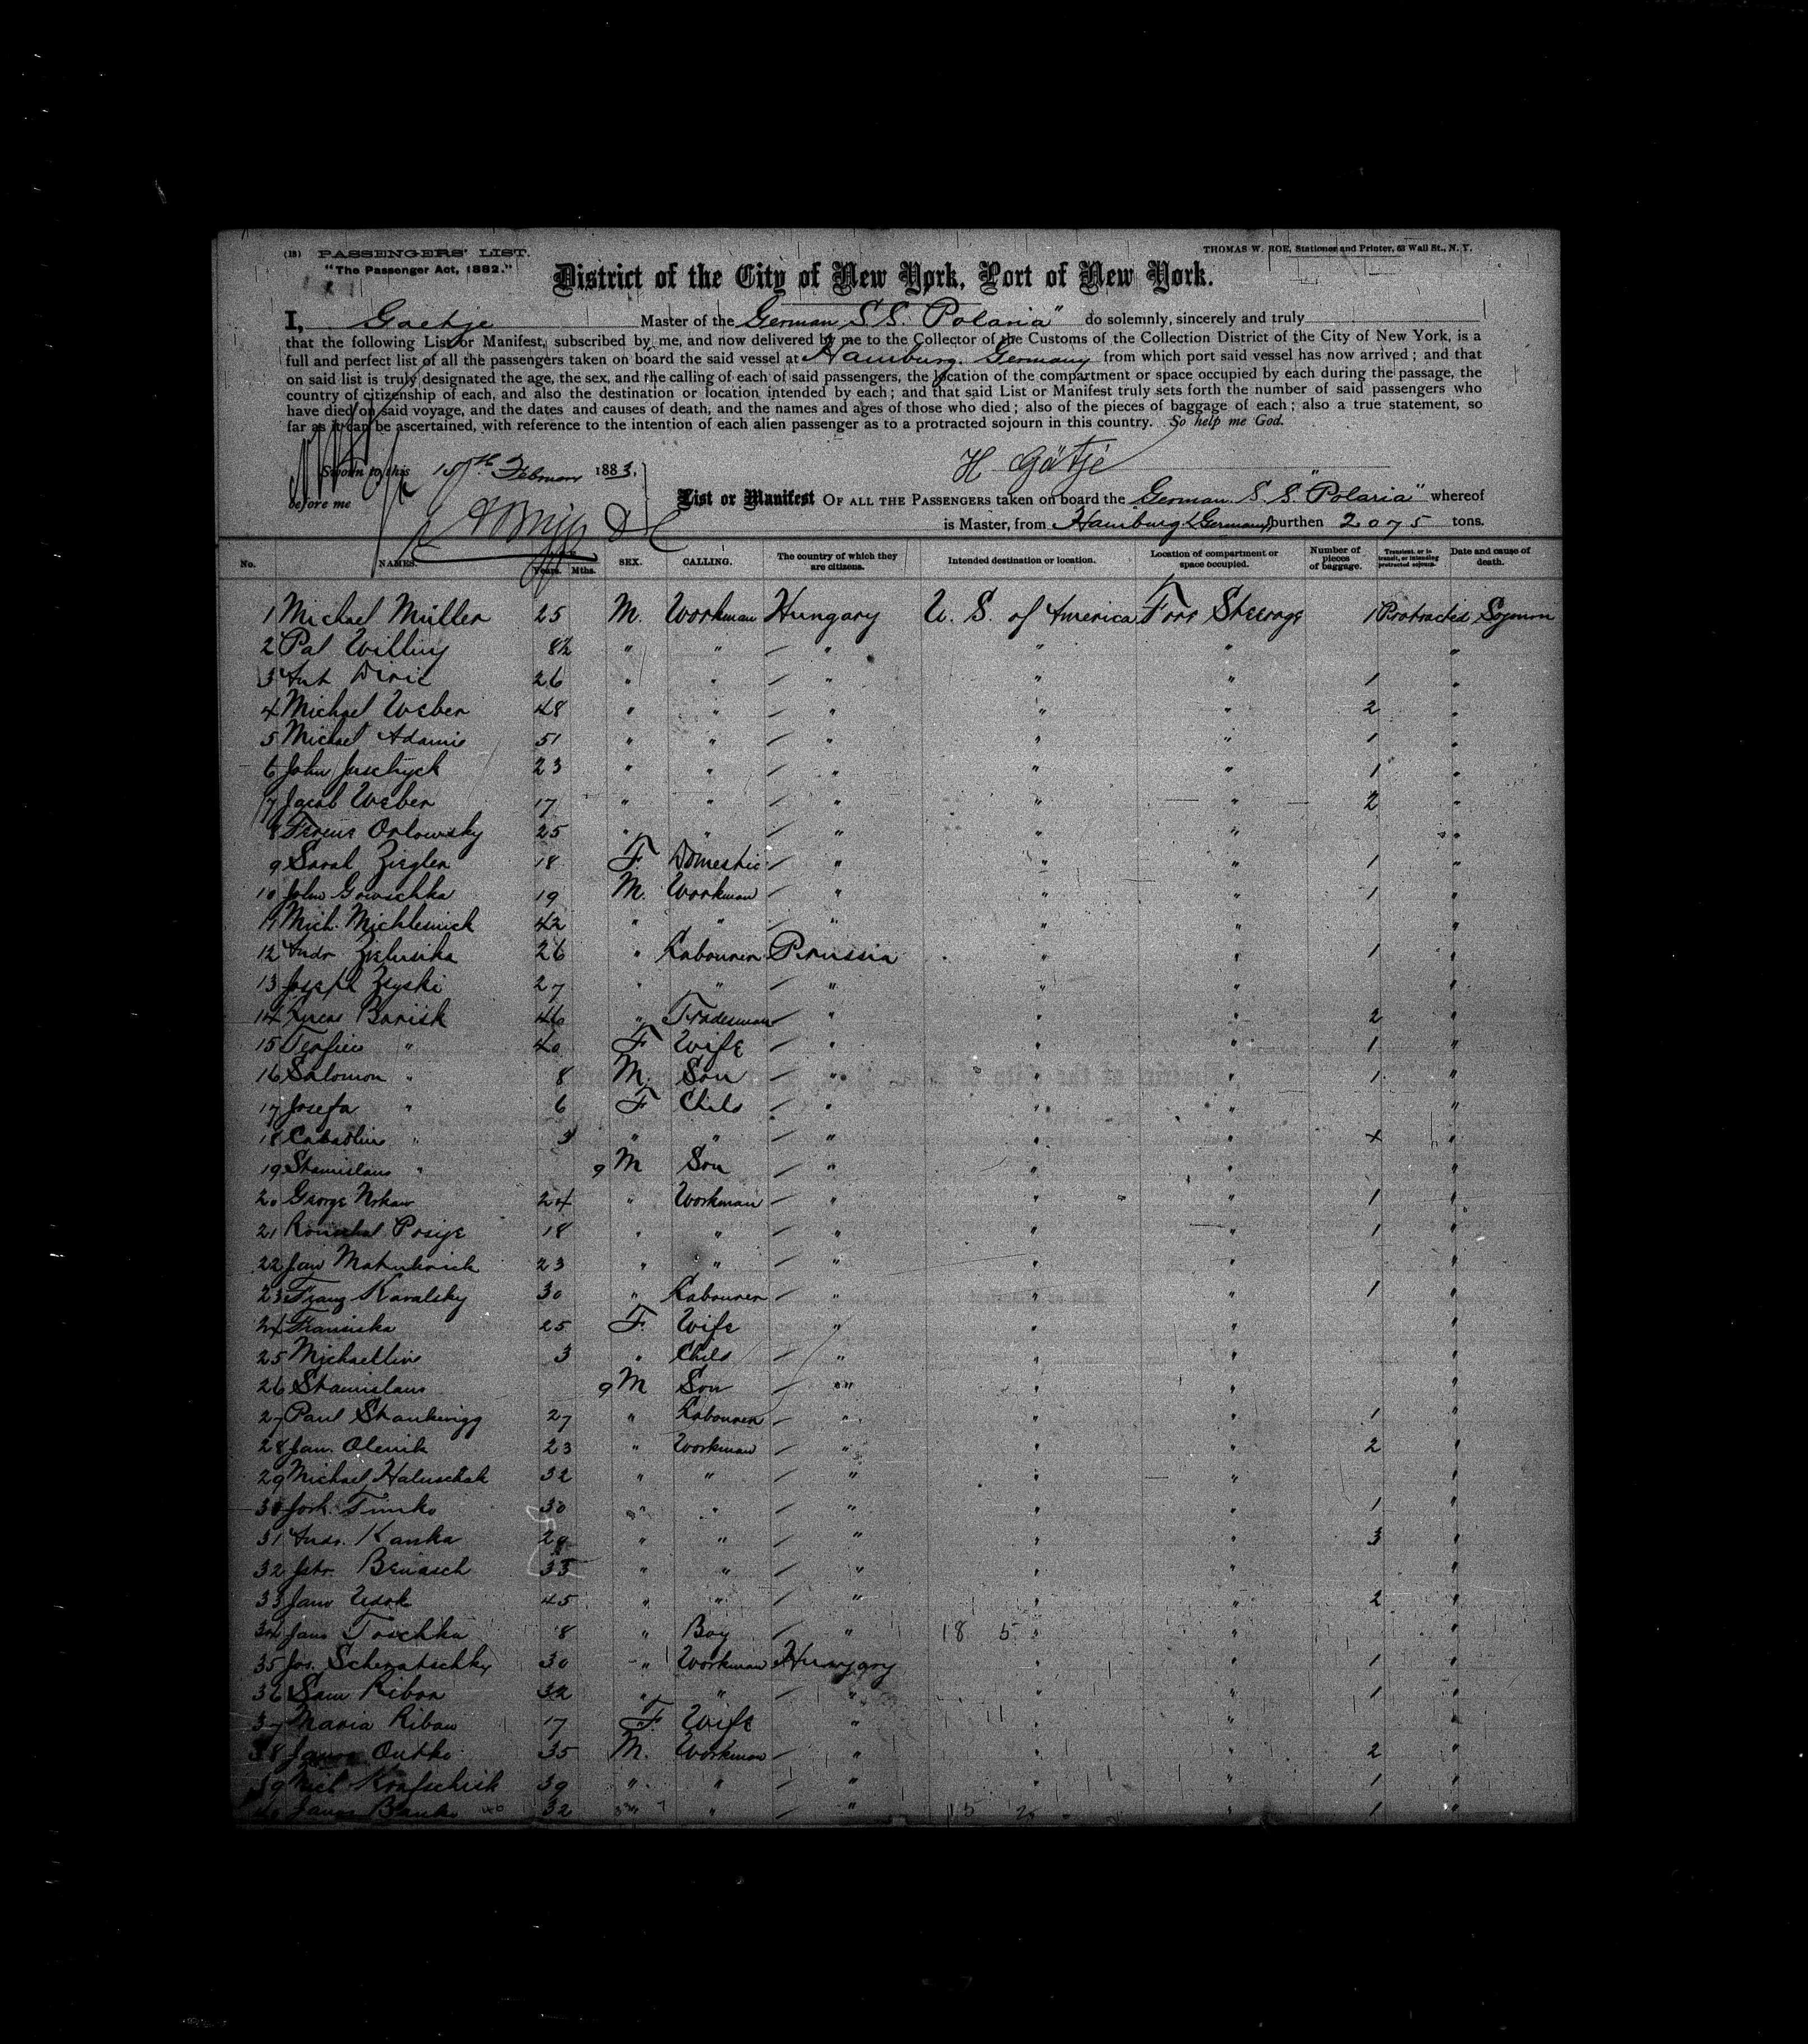 (13) PASSENGERS' LIST.
THOMAS W. ROE, Stationer and Printer, 63 Wall St., N. Y.
"The Passenger Act, 1882."
District of the City of New York, Port of New York.
I, Goetje Master of the German S.S. Polaria" do solemnly, sincerely and truly
that the following List or Manifest, subscribed by me, and now delivered by me to the Collector of the Customs of the Collection District of the City of New York, is a
full and perfect list of all the passengers taken on board the said vessel at Hamburg. Germany from which port said vessel has now arrived; and that
on said list is truly designated the age, the sex, and the calling of each of said passengers, the location of the compartment or space occupied by each during the passage, the
country of citizenship of each, and also the destination or location intended by each; and that said List or Manifest truly sets forth the number of said passengers who
have died on said voyage, and the dates and causes of death, and the names and ages of those who died; also of the pieces of baggage of each; also a true statement, so
far as it can be ascertained, with reference to the intention of each alien passenger as to a protracted sojourn in this country. So help me God.
Sworn to this 15th February 1883,
H Götje
before me
List or Manifest OF ALL THE PASSENGERS taken on board the German S. S. "Polaria" whereof
is Master, from Hamburg Germany burthen 2075 tons.
No. NAMES. Years. Mths. SEX. CALLING. The country of which they are citizens. Intended destination or location. Location of compartment or space occupied. Number of pieces of baggage. Transient, or in transit, or intending protracted sojourn. Date and cause of death.
1 Michael Müller 25 M. Workman Hungary U. S. of America Fore Steerage 1 Protracted Sojourn
2 Pal " " " " " "
3 26 " " " " " 1 "
4 Michael Weber 48 " " " " " 2 "
5 Michael Adamis 51 " " " " " 1 "
6 John Juschyck 23 " " " " " 1 "
7 Jacob Weber 17 " " " " " 2 "
8 Orlowsky 25 " " " " " "
9 Sarah Ziegler 18 F. Domestic " " " 1 "
10 John Gowschka 19 M. Workman " " " 1 "
11 Mich. 42 " " " " " "
12 Andr. Zielinska 26 " Labourer Prussia " " 1 "
13 Joseph 27 " " " " " "
14 Barish 46 " Tradesman " " " 2 "
15 " 40 F Wife " " " 1 "
16 Salomon " 8 M. Son " " " 1 "
17 Josefa " 6 F Child " " " "
18 " " " " " " "
19 Stanislaus " 9 M Son " " " "
20 George 24 " Workman " " " 1 "
21 18 " " " " " 1 "
22 Jan 23 " " " " " "
23 Franz Kavalsky 30 " Labourer " " " 1 "
24 Franziska 25 F. Wife " " " "
25 Michaeline 3 " Child " " " "
26 Stanislaus 9 M Son " " " "
27 Paul 27 " Labourer " " " 1 "
28 Jan. Olenik 23 " Workman " " " 2 "
29 Michael Haluschak 32 " " " " " "
30 Timko 30 " " " " " 1 "
31 Andr. Kanka 29 " " " " " 3 "
32 Benasch 35 " " " " " "
33 Jano 45 " " " " " 2 "
34 Jano Toschka 8 " Boy " 18 5 " " "
35 Jos. Schematschky 30 " Workman Hungary " " 1 "
36 Sam 32 " " " " " 1 "
37 Maria 17 F. Wife " " " "
38 Janos 35 M. Workman " " " 2 "
39 Mich 39 " " " " " 1 "
40 Janos Banko 32 " " " 15 " 1 "